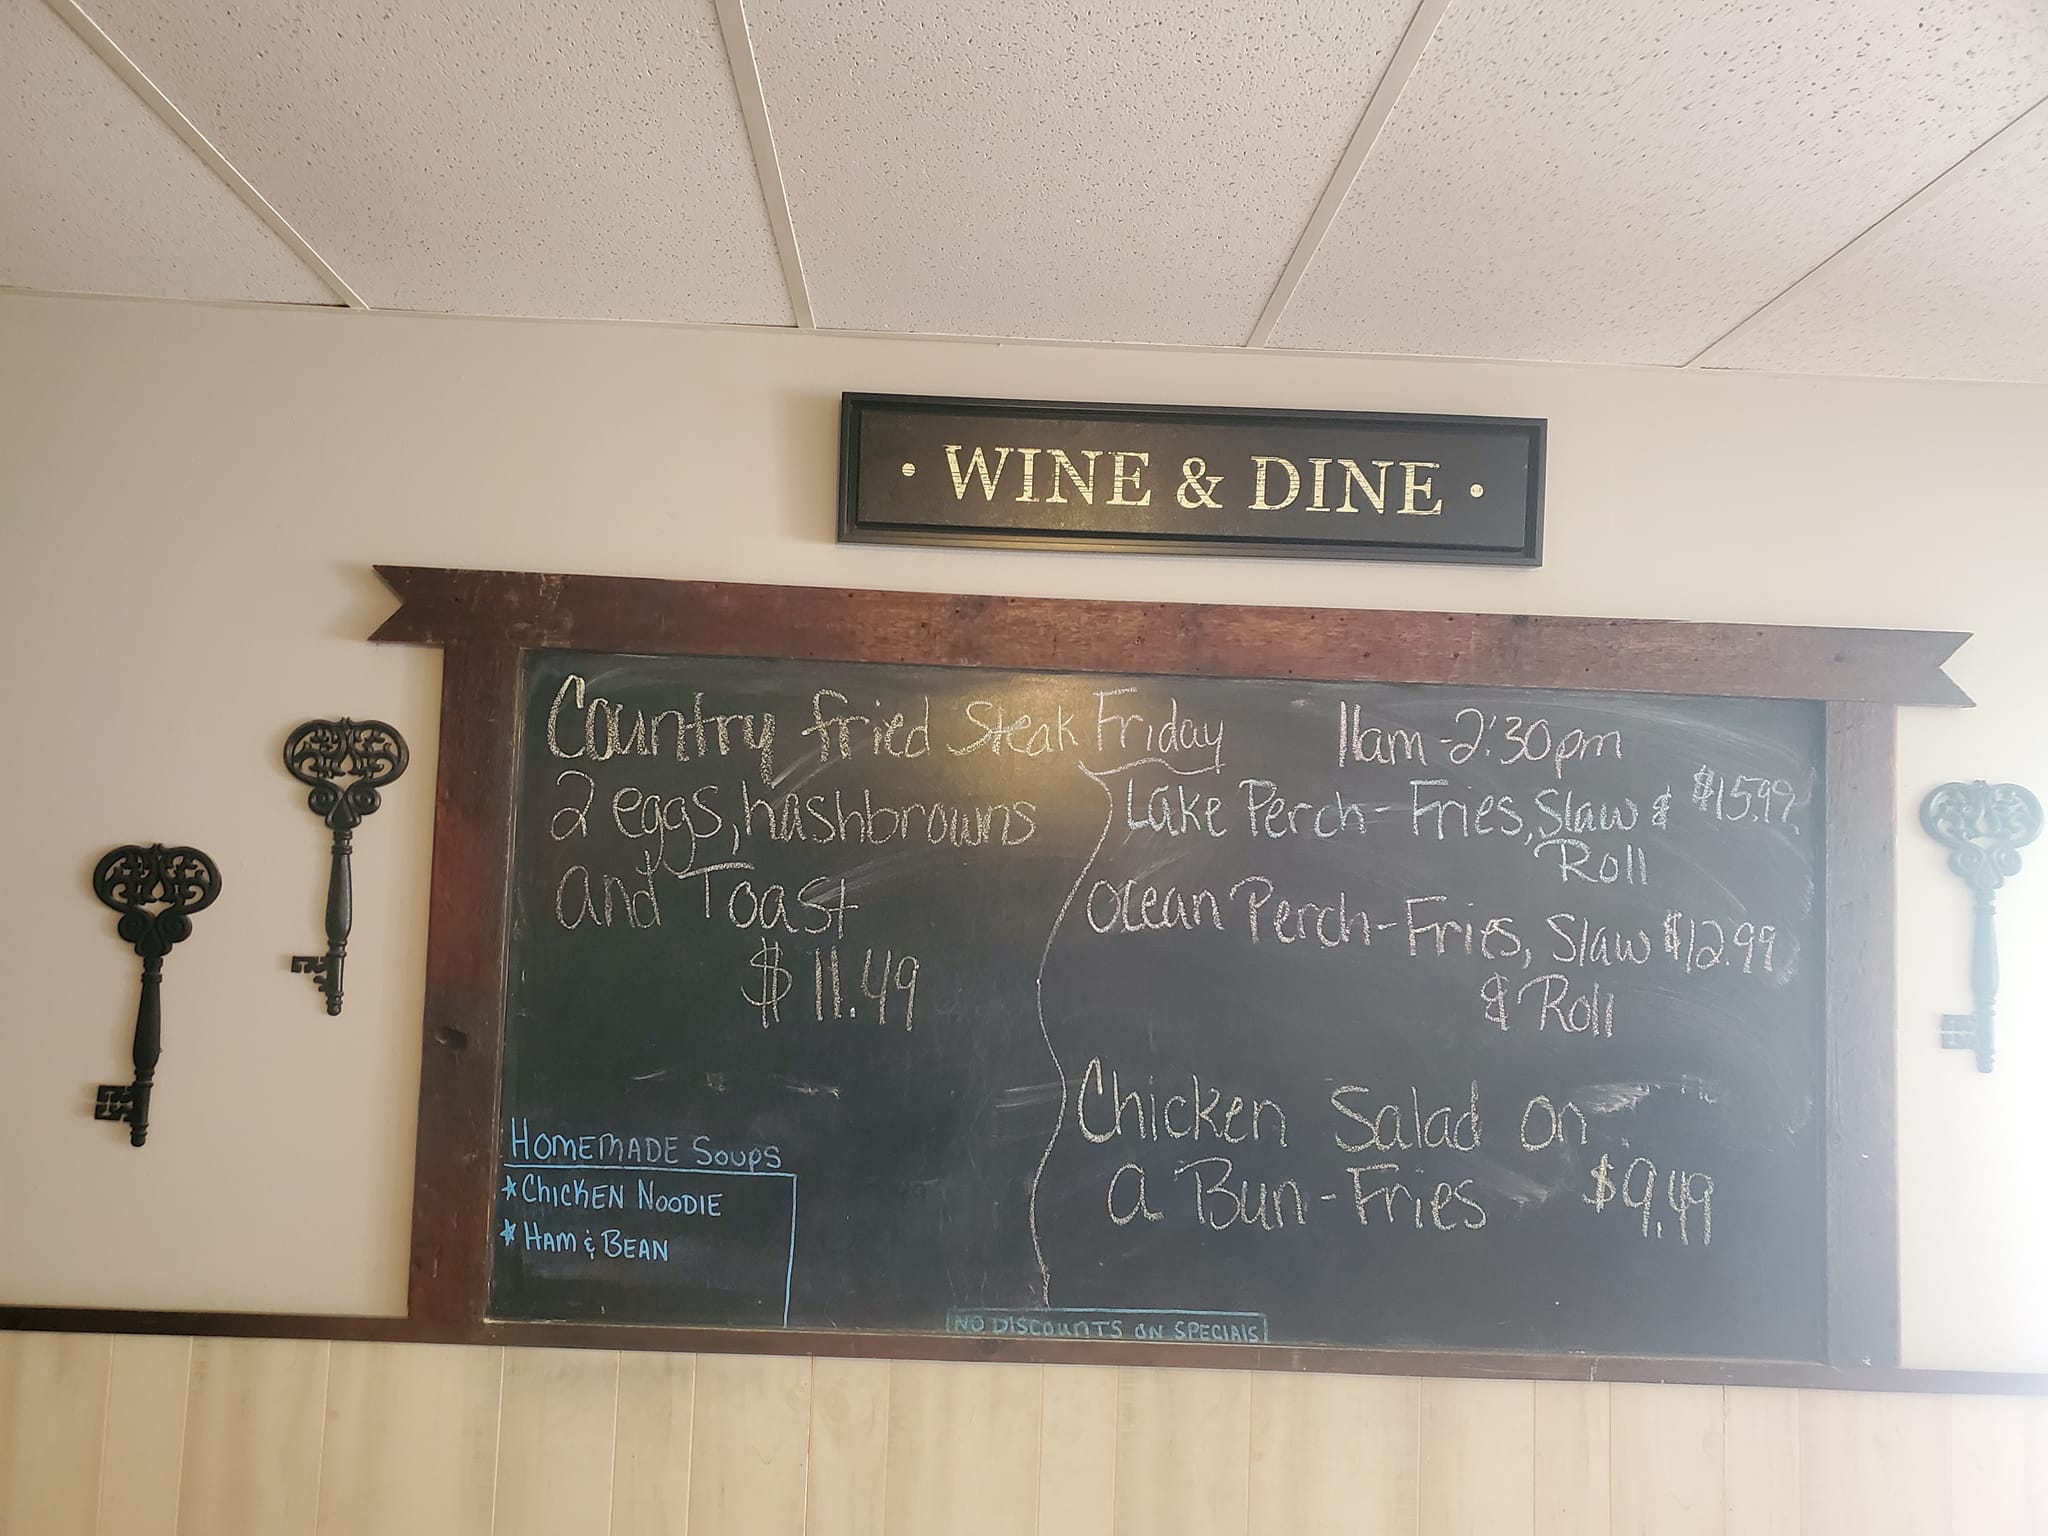 • WINE & DINE •
Country fried Steak
2 eggs, hashbrowns
and Toast
$11.49
HOMEMADE SOUPS
* CHICKEN NOODIE
* HAM & BEAN
Friday 11am-2:30pm
Lake Perch- Fries, Slaw & $15.99
Roll
Ocean Perch- Fries, Slaw $12.99
& Roll
Chicken Salad on
a Bun-Fries $9.49
NO DISCOUNTS ON SPECIALS